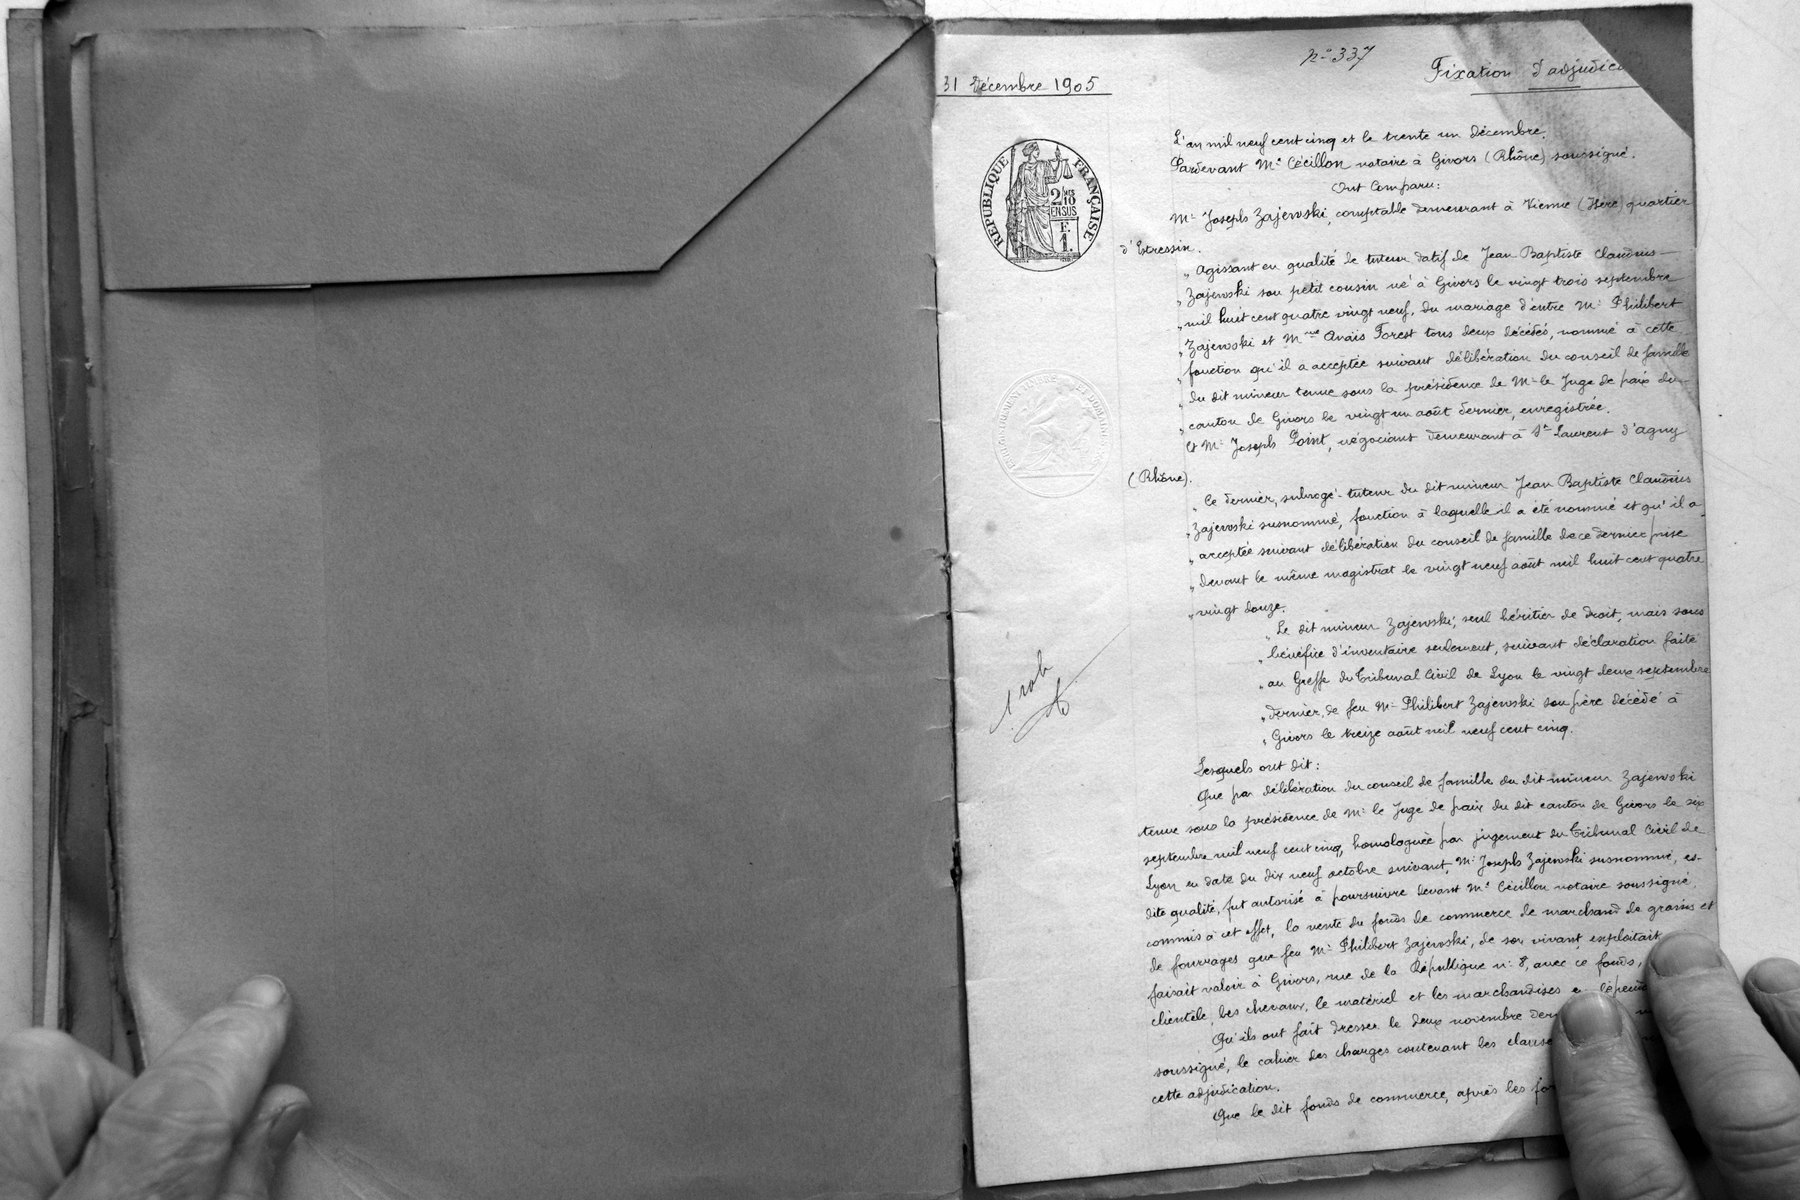 n° 337
31 Décembre 1905
Fixation d'adjudica
RÉPUBLIQUE FRANÇAISE
2/10
EN SUS
F.
1.
L'an mil neuf cent cinq et le trente un décembre.
Pardevant Me Cécillon notaire à Givors (Rhône) soussigné.
Ont Comparu:
Mr Joseph Zajewski, comptable demeurant à Vienne (Isère) quartier
d'Estressin.
„ Agissant en qualité de tuteur datif de Jean Baptiste Claudius
„ Zajewski son petit cousin né à Givors le vingt trois septembre
„ mil huit cent quatre vingt neuf, du mariage d'entre Mr Philibert
„ Zajewski et Mme Anaïs Forest tous deux décédés, nommé à cette
„ fonction qu'il a acceptée suivant délibération du conseil de famille
„ du dit mineur tenue sous la présidence de Mr le Juge de paix du
„ canton de Givors le vingt un août dernier, enregistrée.
Et Mr Joseph Point, négociant demeurant à St Laurent d'Agny
(Rhône).
„ Ce dernier, subrogé-tuteur du dit mineur Jean Baptiste Claudius
„ Zajewski susnommé, fonction à laquelle il a été nommé et qu'il a
„ acceptée suivant délibération du conseil de famille de ce dernier prise
„ devant le même magistrat le vingt neuf août mil huit cent quatre
„ vingt douze.
„ Le dit mineur Zajewski, seul héritier de droit, mais sous
„ bénéfice d'inventaire seulement, suivant déclaration faite
„ au Greffe du Tribunal Civil de Lyon le vingt deux septembre
„ dernier, de feu Mr Philibert Zajewski son père décédé à
„ Givors le treize août mil neuf cent cinq.
Lesquels ont dit:
Que par délibération du conseil de famille du dit mineur Zajewski
tenue sous la présidence de Mr le Juge de paix du dit canton de Givors le six
septembre mil neuf cent cinq, homologuée par jugement du Tribunal Civil de
Lyon en date du dix neuf octobre suivant, Mr Joseph Zajewski susnommé, es-
dite qualité, fut autorisé à poursuivre devant Me Cécillon notaire soussigné,
commis à cet effet, la vente du fonds de commerce de marchand de grains et
de fourrages que feu Mr Philibert Zajewski, de son vivant, exploitait
faisait valoir à Givors, rue de la République n° 8, avec ce fonds,
clientèle, les chevaux, le matériel et les marchandises en dépend
Qu'ils ont fait dresser le deux novembre der
soussigné, le cahier des charges contenant les clause
cette adjudication.
Que le dit fonds de commerce, après les for